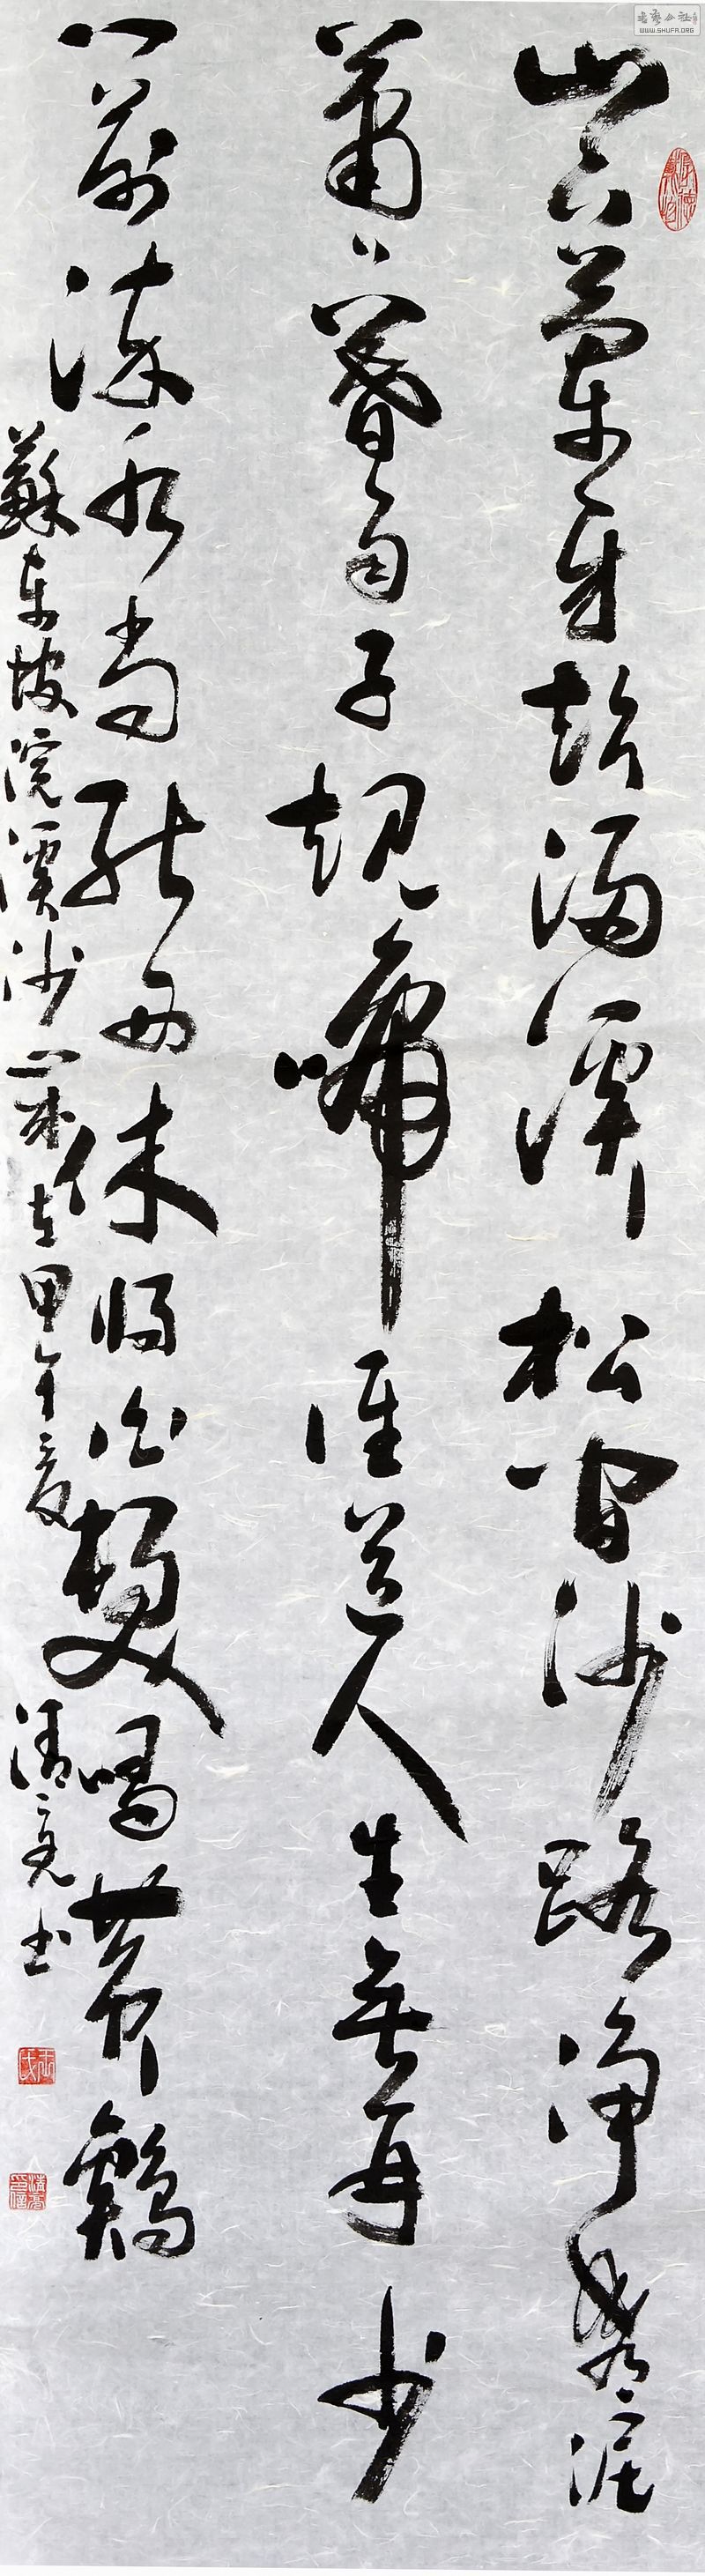 山下蘭牙短浸溪松間沙路淨無泥
蕭〻暮雨子規啼誰道人生無再少
門前流水尚能西休將白髮唱黃雞
蘇東坡浣溪沙甲午夏清亮书
厚德載物
清亮印信
WWW.SHUFA.ORG